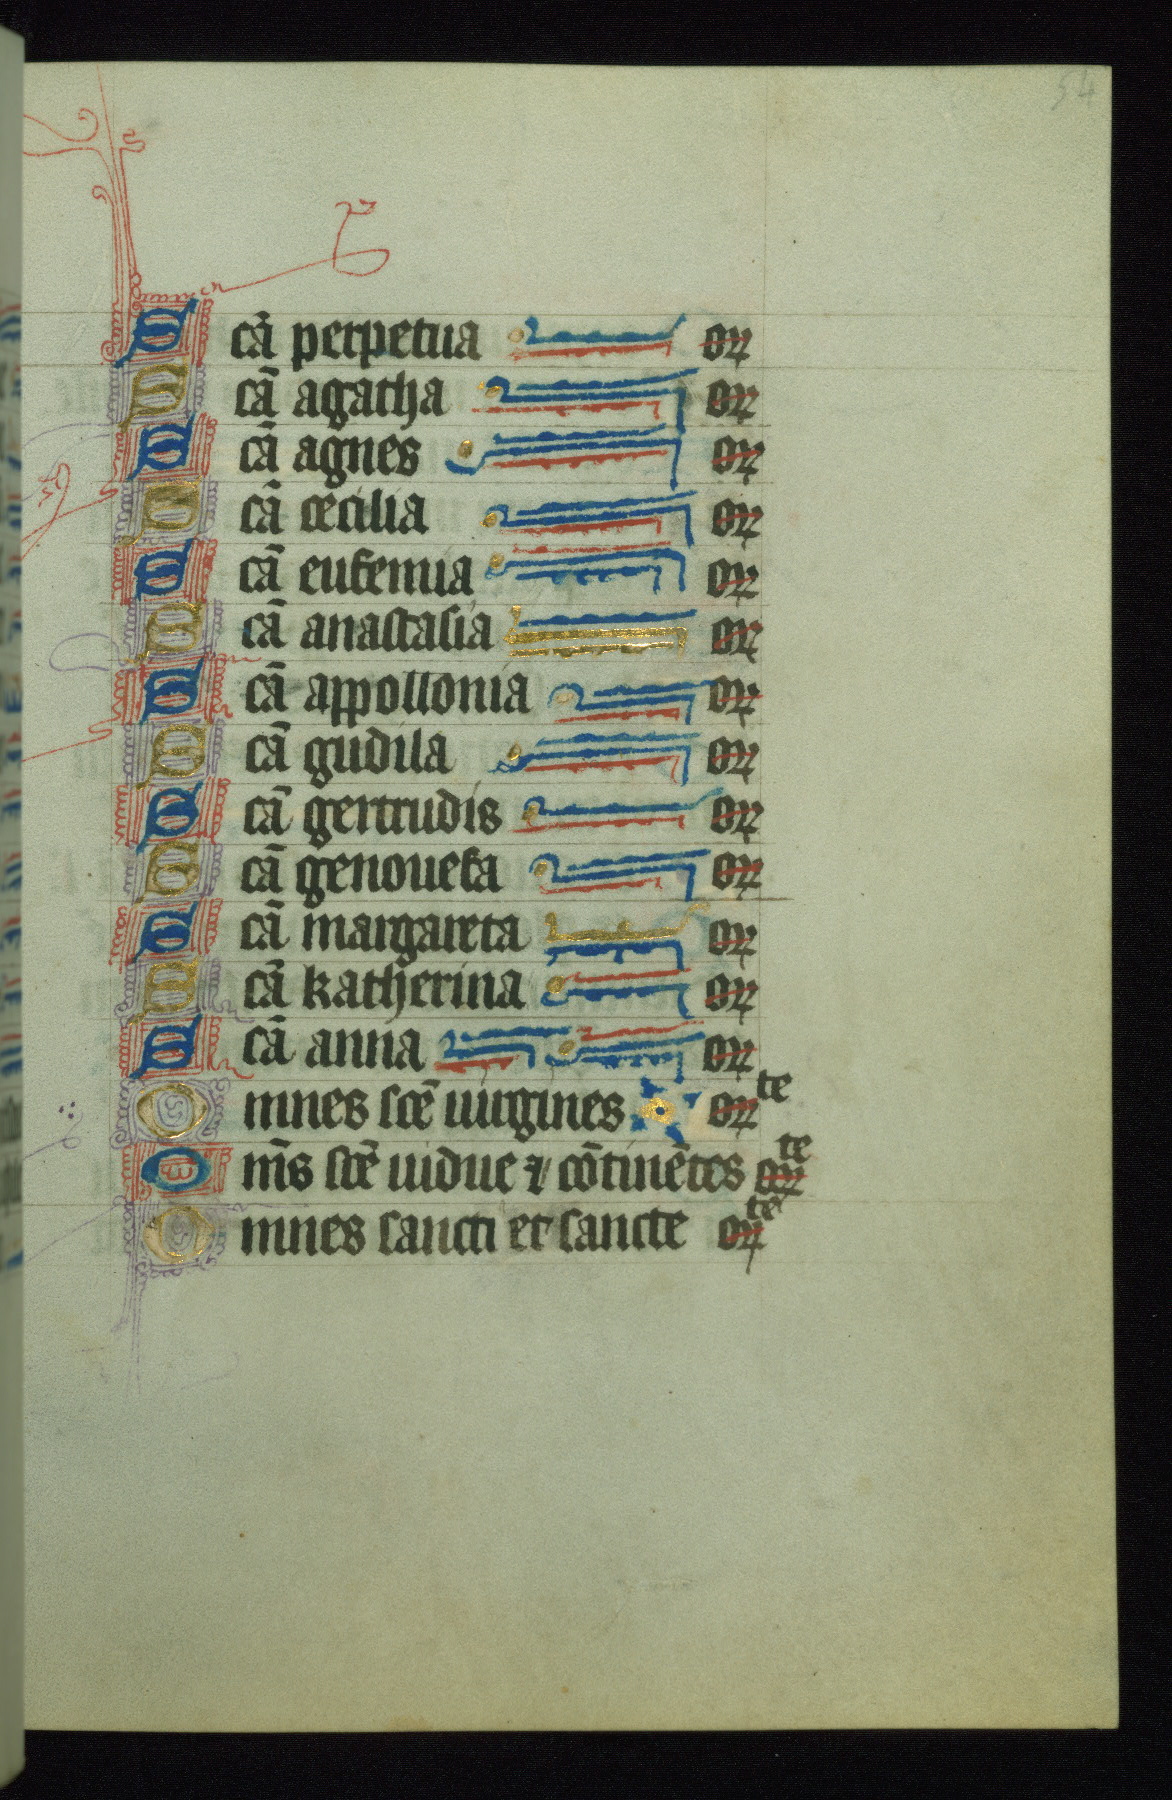 54
Scā perpetua or
Scā agatha or
Scā agnes or
Scā cecilia or
Scā eufemia or
Scā anastasia or
Scā appollonia or
Scā gudila or
Scā gertrudis or
Scā genouefa or
Scā margareta or
Scā katherina or
Scā anna or
Omnes scē uirgines orte
Om̄s scē uidue ⁊ cōtinētes orte
Omnes sancti et sancte orte